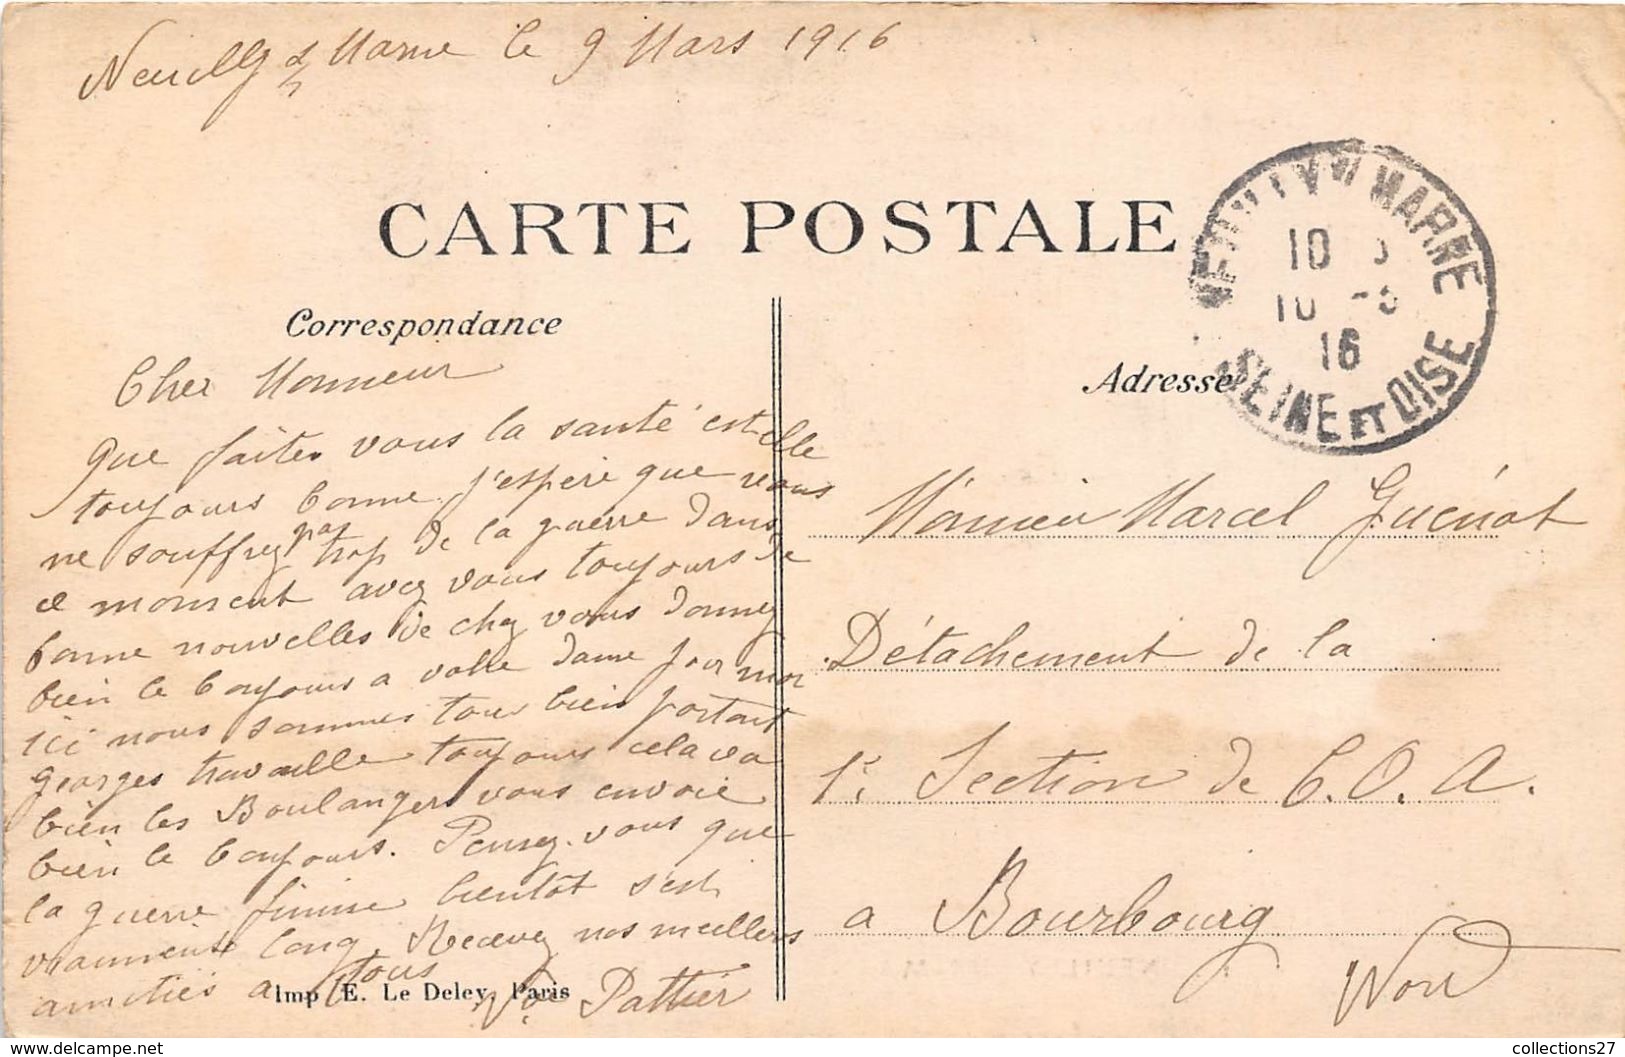 Neuilly s/ Marne le 9 Mars 1916
CARTE POSTALE
NEUILLY S/ MARNE
10
10 -3
16
SEINE ET OISE
Correspondance
Cher Monsieur
que faites vous la santé est elle
toujours bonne j'espère que vous
ne souffrez pas trop de la guerre dans
ce moment avez vous toujours de
bonne nouvelles de chez vous donnez
bien le bonjours a votre dame pour moi
ici nous sommes tous bien portant
Georges travaille toujours cela va
bien les Boulanger vous envoie
bien le bonjours. Pensez-vous que
la guerre finisse bientôt s'est
vraiment long. Recevez nos meillers
amitiés a tous
Vve Pattier
Imp. E. Le Deley, Paris
Adresse
Monsieur Marcel Guénot
Détachement de la
1e Section de C.O.A.
a Bourbourg
Nord
collections27